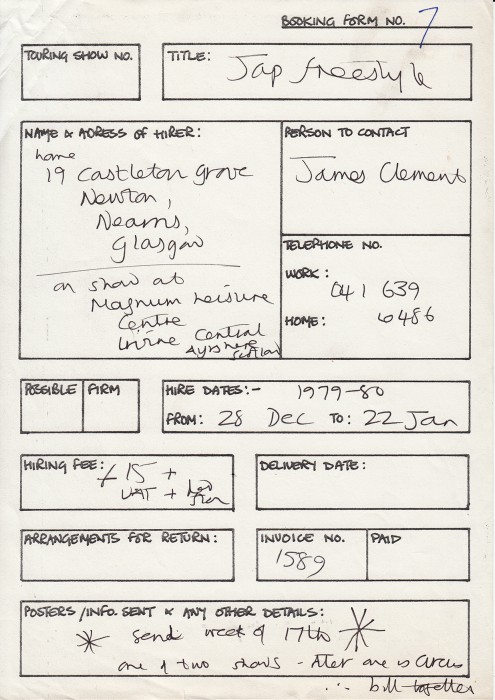 BOOKING FORM NO. 7
TOURING SHOW NO.
TITLE: Jap freestyle
NAME & ADRESS OF HIRER:
home
19 Castleton grove
Newton,
Nearns,
Glasgow
on show at
Magnum Leisure
Centre
Irvine Central
Ayrshere
Scotland
PERSON TO CONTACT
James Clement
TELEPHONE NO.
WORK: 041 639
HOME: 6486
POSSIBLE FIRM
HIRE DATES:- 1979-80
FROM: 28 Dec TO: 22 Jan
HIRING FEE: £15 +
VAT +
DELIVERY DATE:
ARRANGEMENTS FOR RETURN:
INVOICE NO. PAID
1589
POSTERS/INFO. SENT & ANY OTHER DETAILS:
send week of 17th
one of two shows - other one is Circus
... bill together